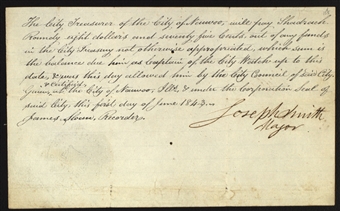 The City Treasurer of the City of Nauvoo, will pay Shadrach
Roundy eight dollars and seventy five Cents, out of any funds
in the City Treasury not otherwise appropriated, which sum is
the balance due him as Captain of the City Watch up to this
date, & was this day allowed him by the City Council of said City
& Certified
Given, at the City of Nauvoo, Ills, & under the Corporation Seal of
said City, this first day of June 1843.
James Sloan, Recorder.
Joseph Smith
Mayor